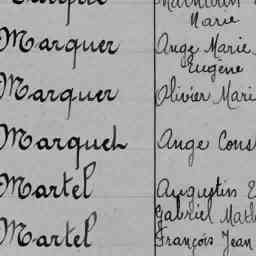 Marie
Marquer Ange Marie
Eugène
Marquer Olivier Mari
Marquch Ange Cons
Martel Augustin E
Gabriel Math
Martel François Jean